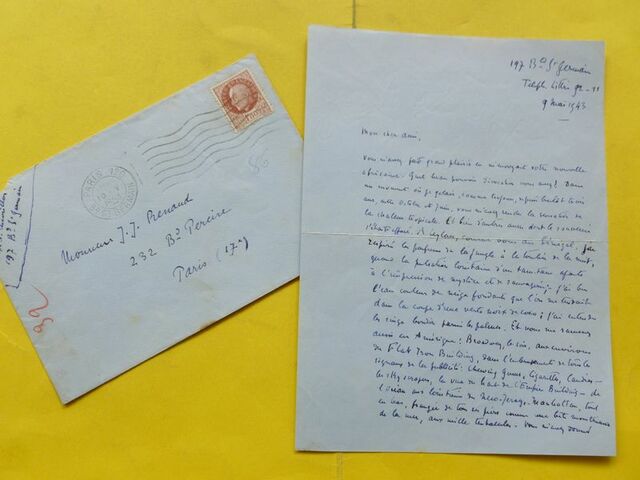 197 Bd St Germain
Monsieur J. J. Renaud
232 Bd Pereire
Paris (17e)
PARIS VII
197 Bd St Germain
Teleph. Littré 92-91
9 mai 1943
Mon cher ami,
Vous m'avez fait grand plaisir en m'envoyant votre nouvelle
africaine. Quel beau pouvoir d'évocation vous avez! Dans
un moment où je gelais, comme toujours, après bientôt trois
ans, entre octobre et juin, vous m'avez rendu la sensation de
la chaleur tropicale. Et bien d'autres aussi dont le souvenir
s'était effacé. A Ceylan, comme vous au Sénégal, j'ai
respiré les parfums de la jungle à la tombée de la nuit,
quand la pulsation lointaine d'un tamtam ajoute
à l'impression de mystère et de sauvagerie; j'ai bu
l'eau couleur de neige fondante que l'on me tendait
dans la coupe d'une verte noix de coco; j'ai entendu
les singes bondir parmi les palmes. Et vous me ramenez
aussi en Amérique: Broadway, le soir, aux environs
du Flat Iron Building, dans l'embrasement de toutes les
signaux de la publicité: chewing gums, cigarettes, Candies -
les sky scrapers, la vue de haut de l'Empire Building - de
l'océan aux lointains de New-Jersey - Manhattan, tout
en bas, frangée de tous ses piers comme une bête monstrueuse
de la mer, aux mille tentacules. Vous m'avez donné